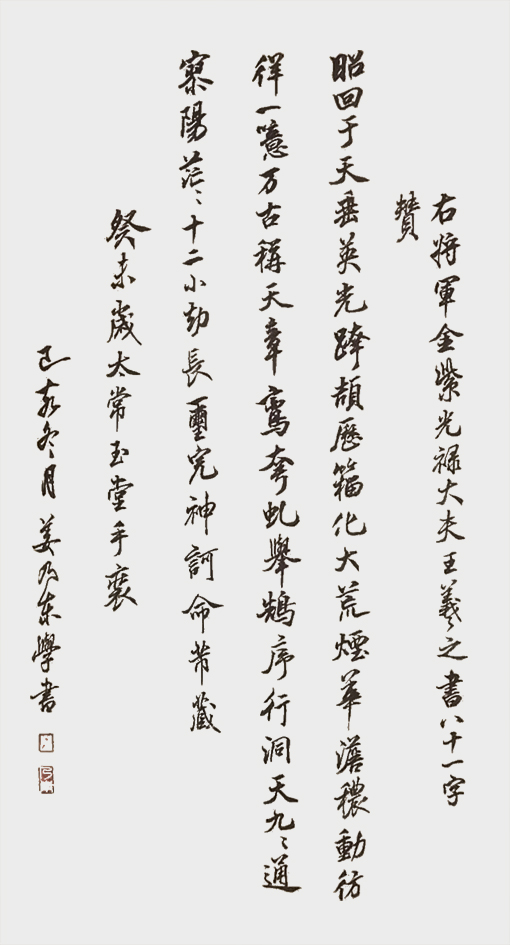 右將軍金紫光禄大夫王羲之書八十一字
贊
昭回于天垂英光跨頡歷籀化大荒煙華澹穠動彷
徉一噫万古稱天章鸞夸虬舉鵠序行洞天九〻通
寥陽茫〻十二小劫長璽完神訶命芾藏
癸未歲太常玉堂手裝
己亥冬月姜乃東學書